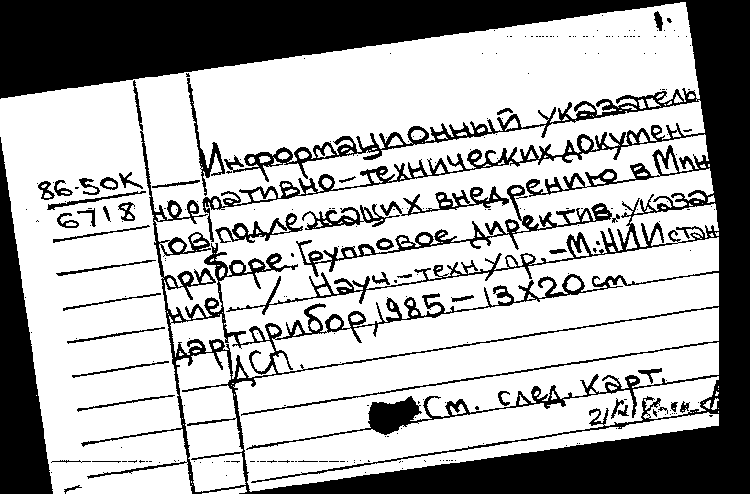 1.
Информационный указатель
86-50К
6718
нормативно-технических докумен-
тов, подлежащих внедрению в Мин-
приборе: [Групповое директив. указа-
ние ... / Науч.-техн. упр. - М.: НИИстан
дартприбор, 1985. - 13 X 20 см.
ДСП.
См. след. карт.